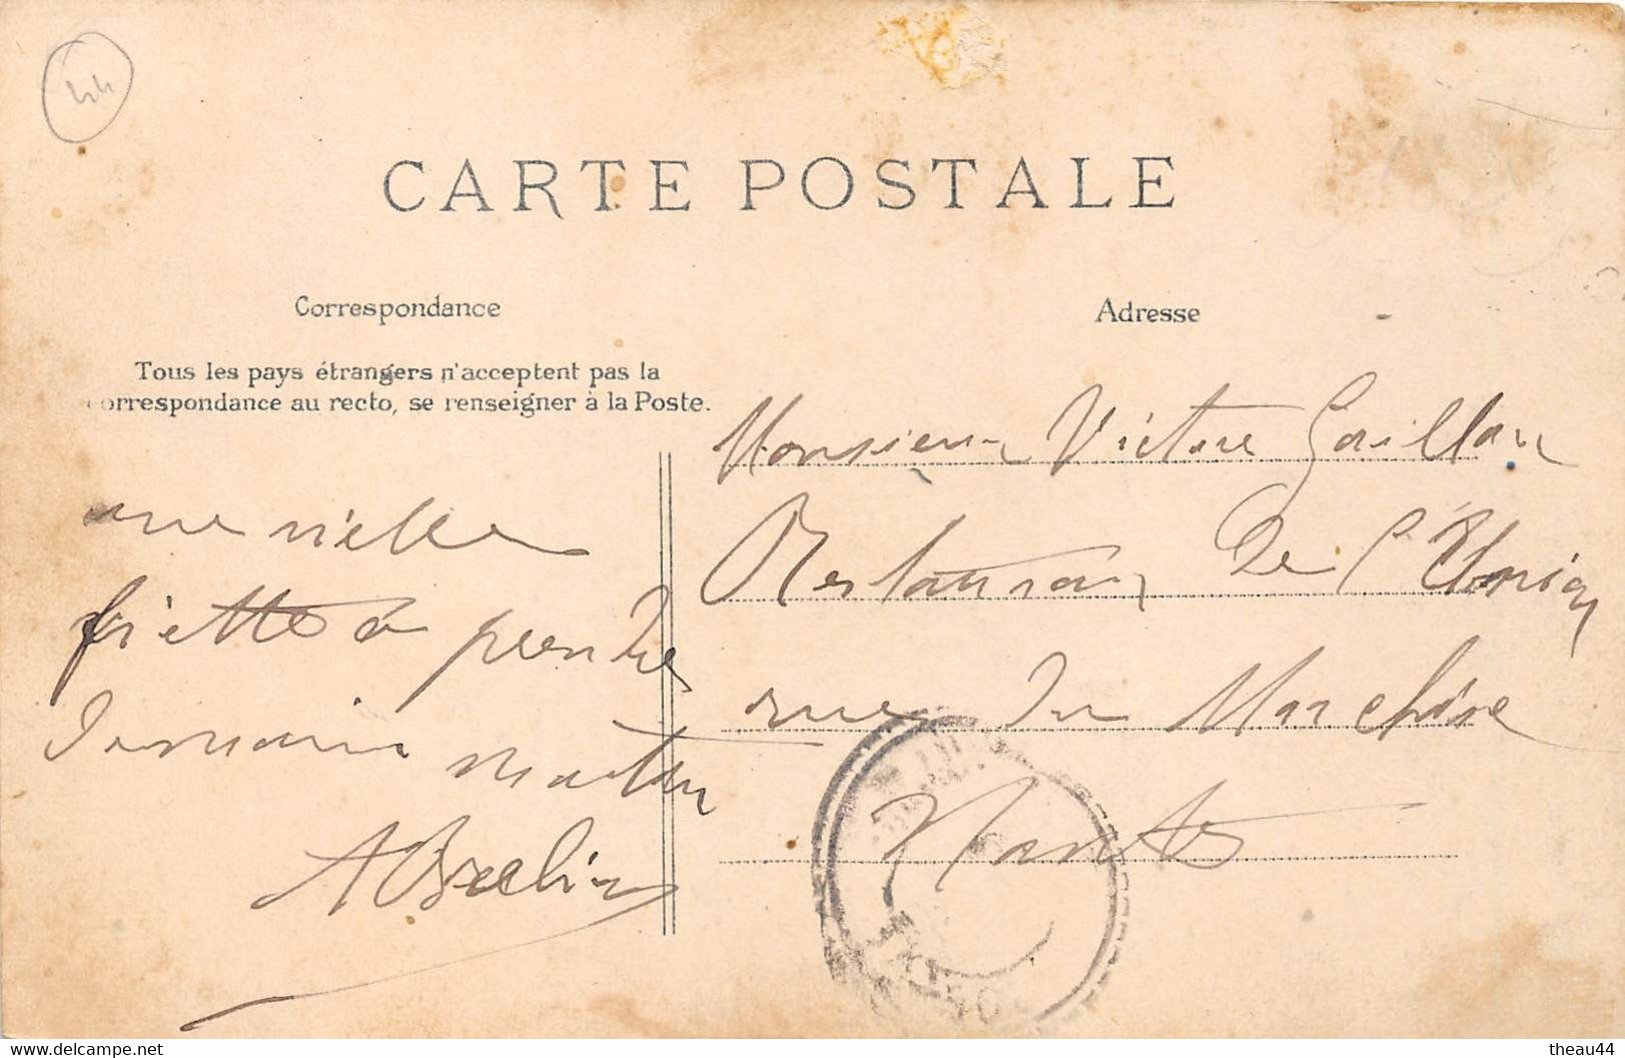 44
CARTE POSTALE
Correspondance
Adresse
Tous les pays étrangers n'acceptent pas la
orrespondance au recto, se renseigner à la Poste.
une vielle
à prendre
demain matin
Monsieur Victore Gaillar
Restauran De l'Union
rue du Marchixe
Nantes
www.delcampe.net
theau44